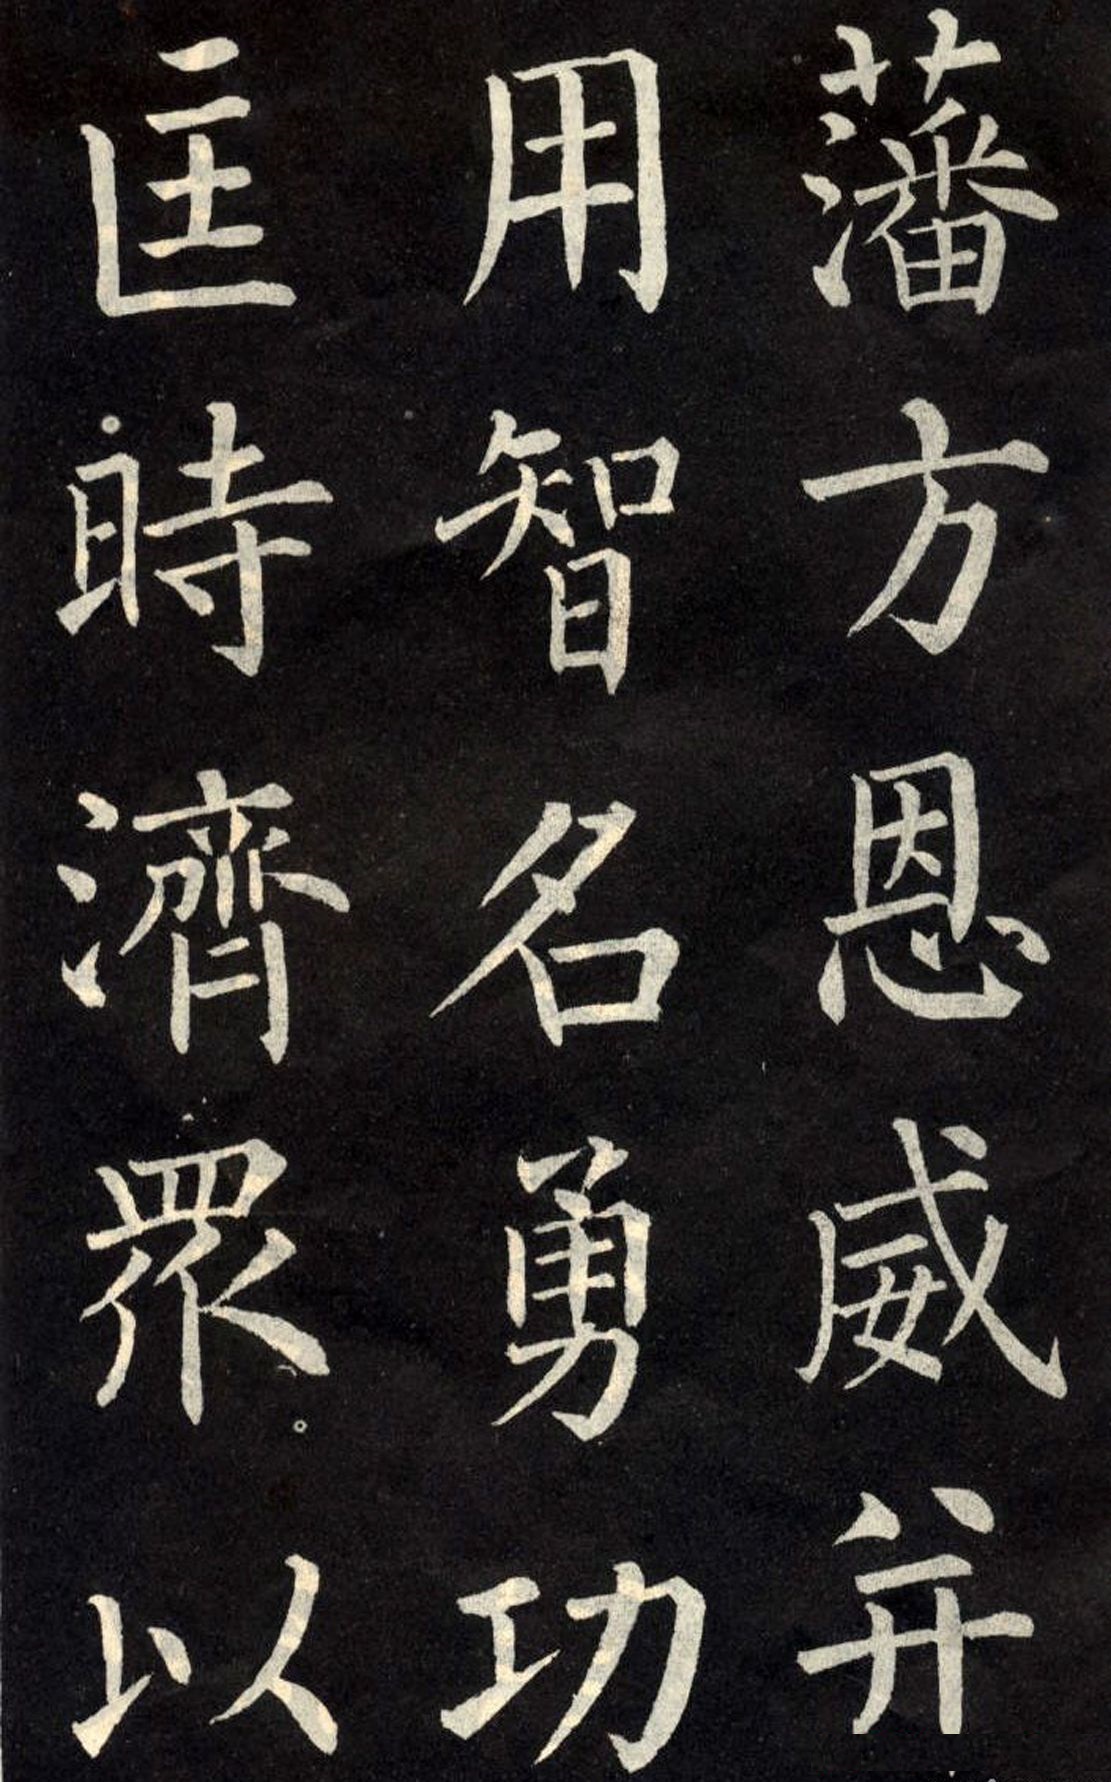 藩方恩威并
用智名勇功
匡時濟眾以